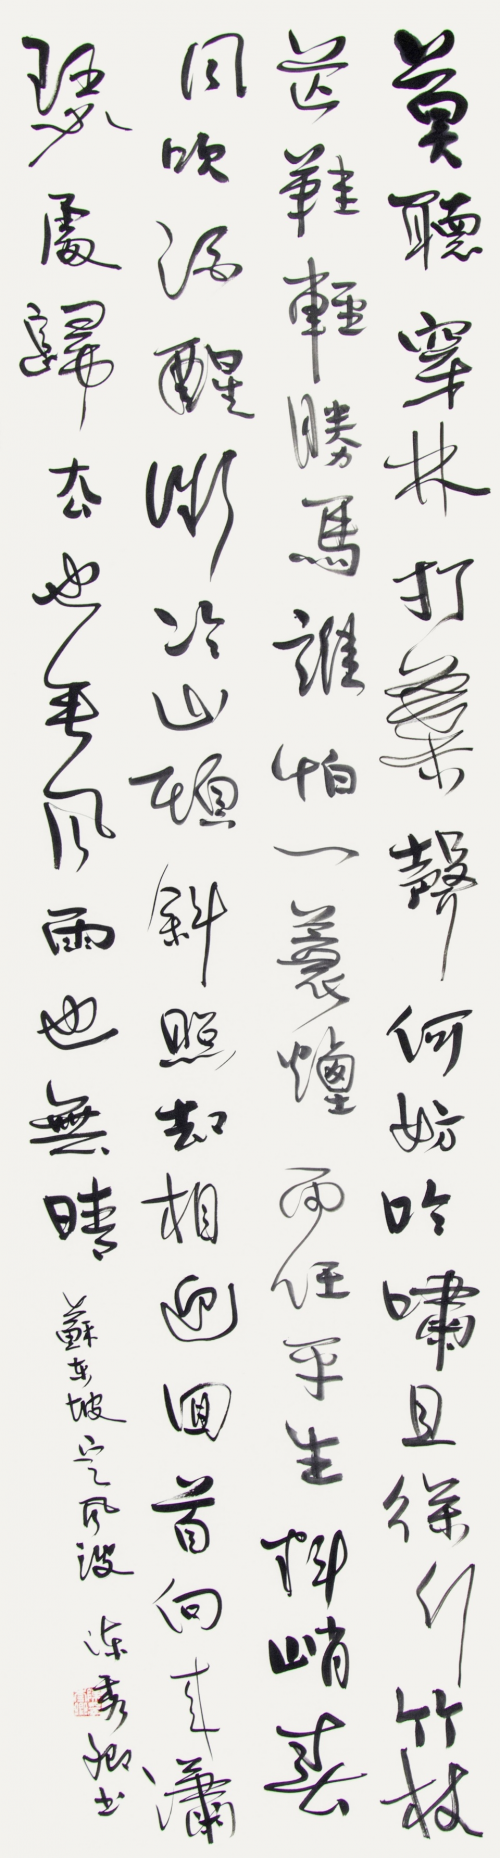 莫聽穿林打葉聲何妨吟嘯且徐行竹杖
芒鞋輕勝馬誰怕一蓑煙雨任平生料峭春
風吹酒醒微冷山頭斜照却相迎回首向來瀟
瑟處歸去也無風雨也無晴
蘇東坡定風波
陳秀卿書